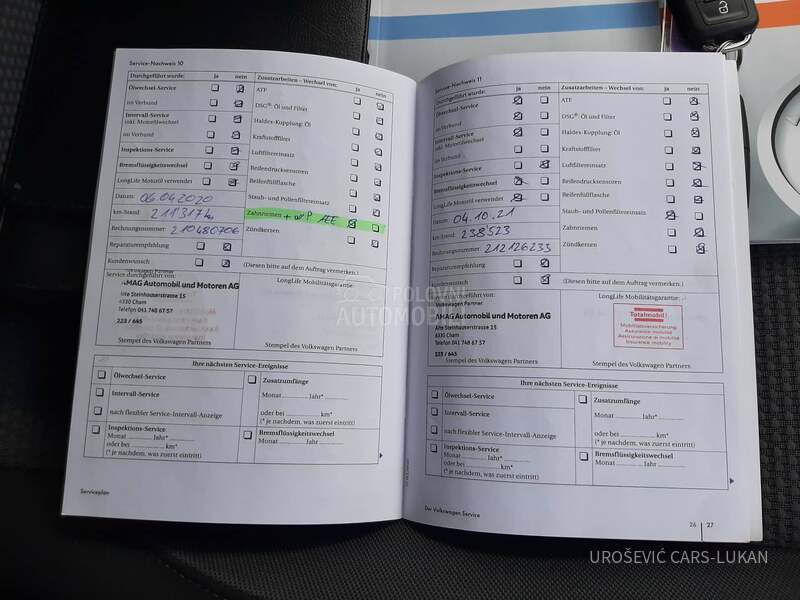 Service-Nachweis 10
Durchgeführt wurde: Ja nein
Ölwechsel-Service
im Verbund
Intervall-Service
inkl. Motorölwechsel
im Verbund
Inspektions-Service
Bremsflüssigkeitswechsel
LongLife Motoröl verwendet
Datum: 06.04.2020
km-Stand: 211'317 km
Rechnungsnummer: 210480706
Reparaturempfehlung
Kundenwunsch
Service durchgeführt von:
Volkswagen Partner
AMAG Automobil und Motoren AG
Alte Steinhauserstrasse 15
6330 Cham
Telefon 041 748 67 57
323 / 645
Stempel des Volkswagen Partners
Zusatzarbeiten – Wechsel von: ja nein
ATF
DSG®: Öl und Filter
Haldex-Kupplung: Öl
Kraftstofffilter
Luftfiltereinsatz
Reifendrucksensoren
Reifenfüllflasche
Staub- und Pollenfiltereinsatz
Zahnriemen + WP
Zündkerzen
(Diesen bitte auf dem Auftrag vermerken.)
LongLife Mobilitätsgarantie:
Stempel des Volkswagen Partners
Ihre nächsten Service-Ereignisse
Ölwechsel-Service
Intervall-Service
nach flexibler Service-Intervall-Anzeige
Inspektions-Service
Monat Jahr*
oder bei km*
(* je nachdem, was zuerst eintritt)
Zusatzumfänge
Monat Jahr*
oder bei km*
(* je nachdem, was zuerst eintritt)
Bremsflüssigkeitswechsel
Monat Jahr
Serviceplan
Service-Nachweis 11
Durchgeführt wurde: Ja nein
Ölwechsel-Service
im Verbund
Intervall-Service
inkl. Motorölwechsel
im Verbund
Inspektions-Service
Bremsflüssigkeitswechsel
LongLife Motoröl verwendet
Datum: 04.10.21
km-Stand: 238'523
Rechnungsnummer: 212126233
Reparaturempfehlung
Kundenwunsch
Service durchgeführt von:
Volkswagen Partner
AMAG Automobil und Motoren AG
Alte Steinhauserstrasse 15
6330 Cham
Telefon 041 748 67 57
323 / 645
Stempel des Volkswagen Partners
Zusatzarbeiten – Wechsel von: ja nein
ATF
DSG®: Öl und Filter
Haldex-Kupplung: Öl
Kraftstofffilter
Luftfiltereinsatz
Reifendrucksensoren
Reifenfüllflasche
Staub- und Pollenfiltereinsatz
Zahnriemen
Zündkerzen
(Diesen bitte auf dem Auftrag vermerken.)
LongLife Mobilitätsgarantie:
Totalmobil!
Mobilitätsversicherung
Assurance mobilité
Assicurazione di mobilità
Insurance mobility
Stempel des Volkswagen Partners
Ihre nächsten Service-Ereignisse
Ölwechsel-Service
Intervall-Service
nach flexibler Service-Intervall-Anzeige
Inspektions-Service
Monat Jahr*
oder bei km*
(* je nachdem, was zuerst eintritt)
Zusatzumfänge
Monat Jahr*
oder bei km*
(* je nachdem, was zuerst eintritt)
Bremsflüssigkeitswechsel
Monat Jahr
Der Volkswagen Service
26 27
POLOVNI
AUTOMOBILI
UROŠEVIĆ CARS-LUKAN